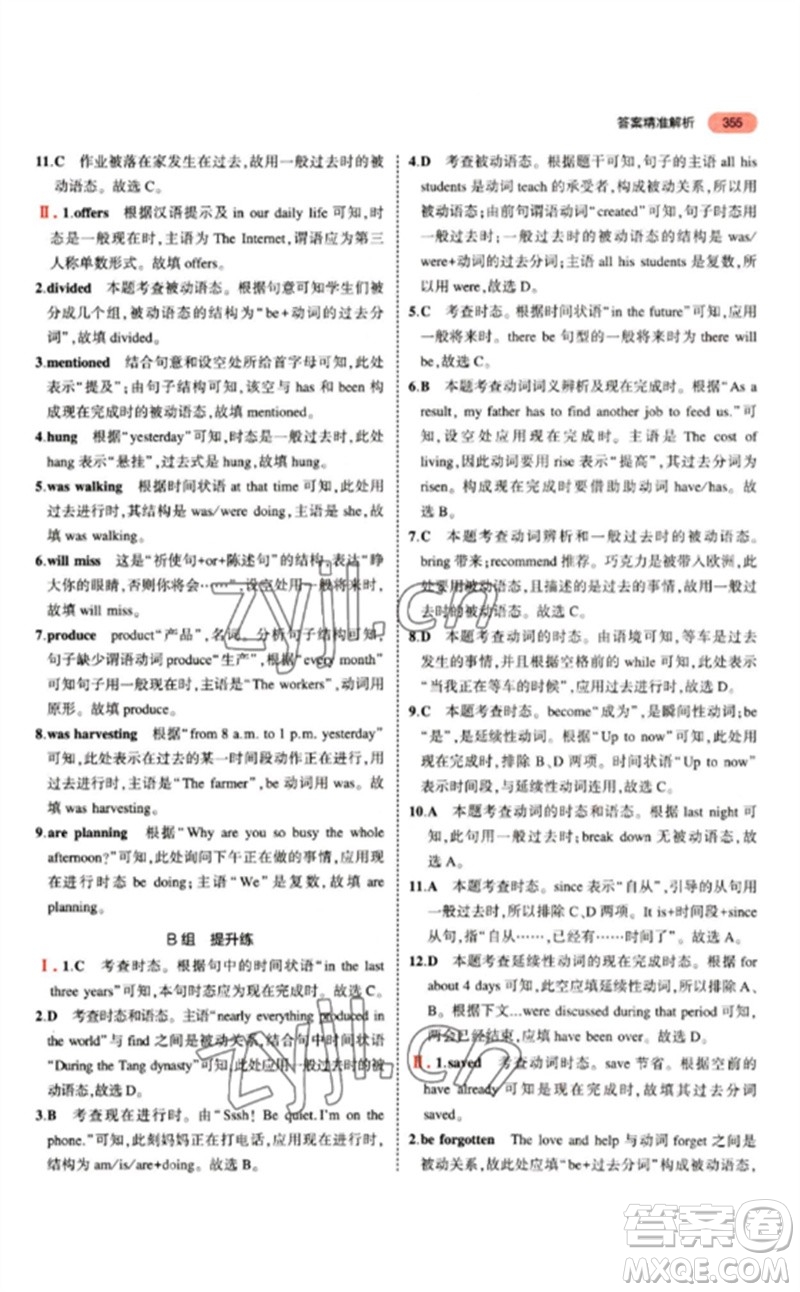 答案精准解析 355
11.C 作业被落在家发生在过去,故用一般过去时的被
动语态。故选 C。
Ⅱ. 1.offers 根据汉语提示及 in our daily life 可知,时
态是一般现在时,主语为 The Internet,谓语应为第三
人称单数形式。故填 offers.
2.divided 本题考查被动语态。根据句意可知学生们被
分成几个组,被动语态的结构为“be+动词的过去分
词”,故填 divided.
3.mentioned 结合句意和设空处所给首字母可知,此处
表示“提及”;由句子结构可知,该空与 has 和 been 构
成现在完成时的被动语态,故填 mentioned.
4.hung 根据“yesterday”可知,时态是一般过去时,此处
hang 表示“悬挂”,过去式是 hung,故填 hung.
5.was walking 根据时间状语 at that time 可知,此处用
过去进行时,其结构是 was/were doing,主语是 she,故
填 was walking.
6.will miss 这是“祈使句+or+陈述句”的结构,表达“睁
大你的眼睛,否则你将会……”,设空处用一般将来时,
故填 will miss.
7.produce product“产品”,名词。分析句子结构可知,
句子缺少谓语动词 produce“生产”,根据“every month”
可知句子用一般现在时,主语是“The workers”,动词用
原形。故填 produce.
8.was harvesting 根据“from 8 a.m. to 1 p.m. yesterday”
可知,此处表示在过去的某一时间段动作正在进行,用
过去进行时,主语是“The farmer”,be 动词用 was。故
填 was harvesting.
9.are planning 根据“Why are you so busy the whole
afternoon?”可知,此处询问下午正在做的事情,应用现
在进行时态 be doing;主语“We”是复数,故填 are
planning.
B组 提升练
Ⅰ. 1.C 考查时态。根据句中的时间状语“in the last
three years”可知,本句时态应为现在完成时。故选 C。
2.D 考查时态和语态。主语“nearly everything produced in
the world”与 find 之间是被动关系,结合句中时间状语
“During the Tang dynasty”可知,此处应用一般过去时的被
动语态,故选 D。
3.B 考查现在进行时。由“Sssh! Be quiet.I'm on the
phone.”可知,此刻妈妈正在打电话,应用现在进行时,
结构为 am/is/are+doing。故选 B。
4.D 考查被动语态。根据题干可知,句子的主语 all his
students 是动词 teach 的承受者,构成被动关系,所以用
被动语态;由前句谓语动词“created”可知,句子时态应
为一般过去时;一般过去时的被动语态的结构是 was/
were+动词的过去分词;主语 all his students 是复数,所
以用 were,故选 D。
5.C 考查时态。根据时间状语“in the future”可知,应用
一般将来时。there be 句型的一般将来时为 there will
be,故选 C。
6.B 本题考查动词词义辨析及现在完成时。根据“As a
result, my father has to find another job to feed us.”可
知,设空处应用现在完成时。主语是 The cost of
living,因此动词要用 rise 表示“提高”,其过去分词为
risen。构成现在完成时要借助助动词 have/has。故
选 B。
7.C 本题考查动词辨析和一般过去时的被动语态。
bring 带来;recommend 推荐。巧克力是被带入欧洲,此
处要用被动语态,且描述的是过去的事情,故用一般过
去时的被动语态。故选 C。
8.D 本题考查动词的时态。由语境可知,等车是过去
发生的事情,并且根据空格前的 while 可知,此处表示
“当我正在等车的时候”,应用过去进行时。故选 D。
9.C 本题考查时态。become“成为”,是瞬间性动词;be
“是”,是延续性动词。根据“Up to now”可知,此处应用
现在完成时,排除 B、D 两项。时间状语“Up to now”
表示时间段,与延续性动词连用,故选 C。
10.A 本题考查动词的时态和语态。根据 last night 可
知,此句用一般过去时;break down 无被动语态。故
选 A。
11.A 本题考查时态。since 表示“自从”,引导的从句用
一般过去时,所以排除 C、D 两项。It is+时间段+since
从句,指“自从……,已经有……”,故选 A。
12.D 本题考查延续性动词的现在完成时。根据 for
about 4 days 可知,此空应填延续性动词,所以排除 A、
B。根据下文…were discussed during that period 可知,
两会已经结束,应用一般过去时,故选 D。
Ⅱ. 1.saved 考查动词时态。save 节省。根据空前的
have already 可知是现在完成时,故填其过去分词
saved.
2.be forgotten The love and help 与动词 forget 之间是
被动关系,故此处应填“be+过去分词”构成被动语态,
zyjl.cn
zyjl.cn
答案圈